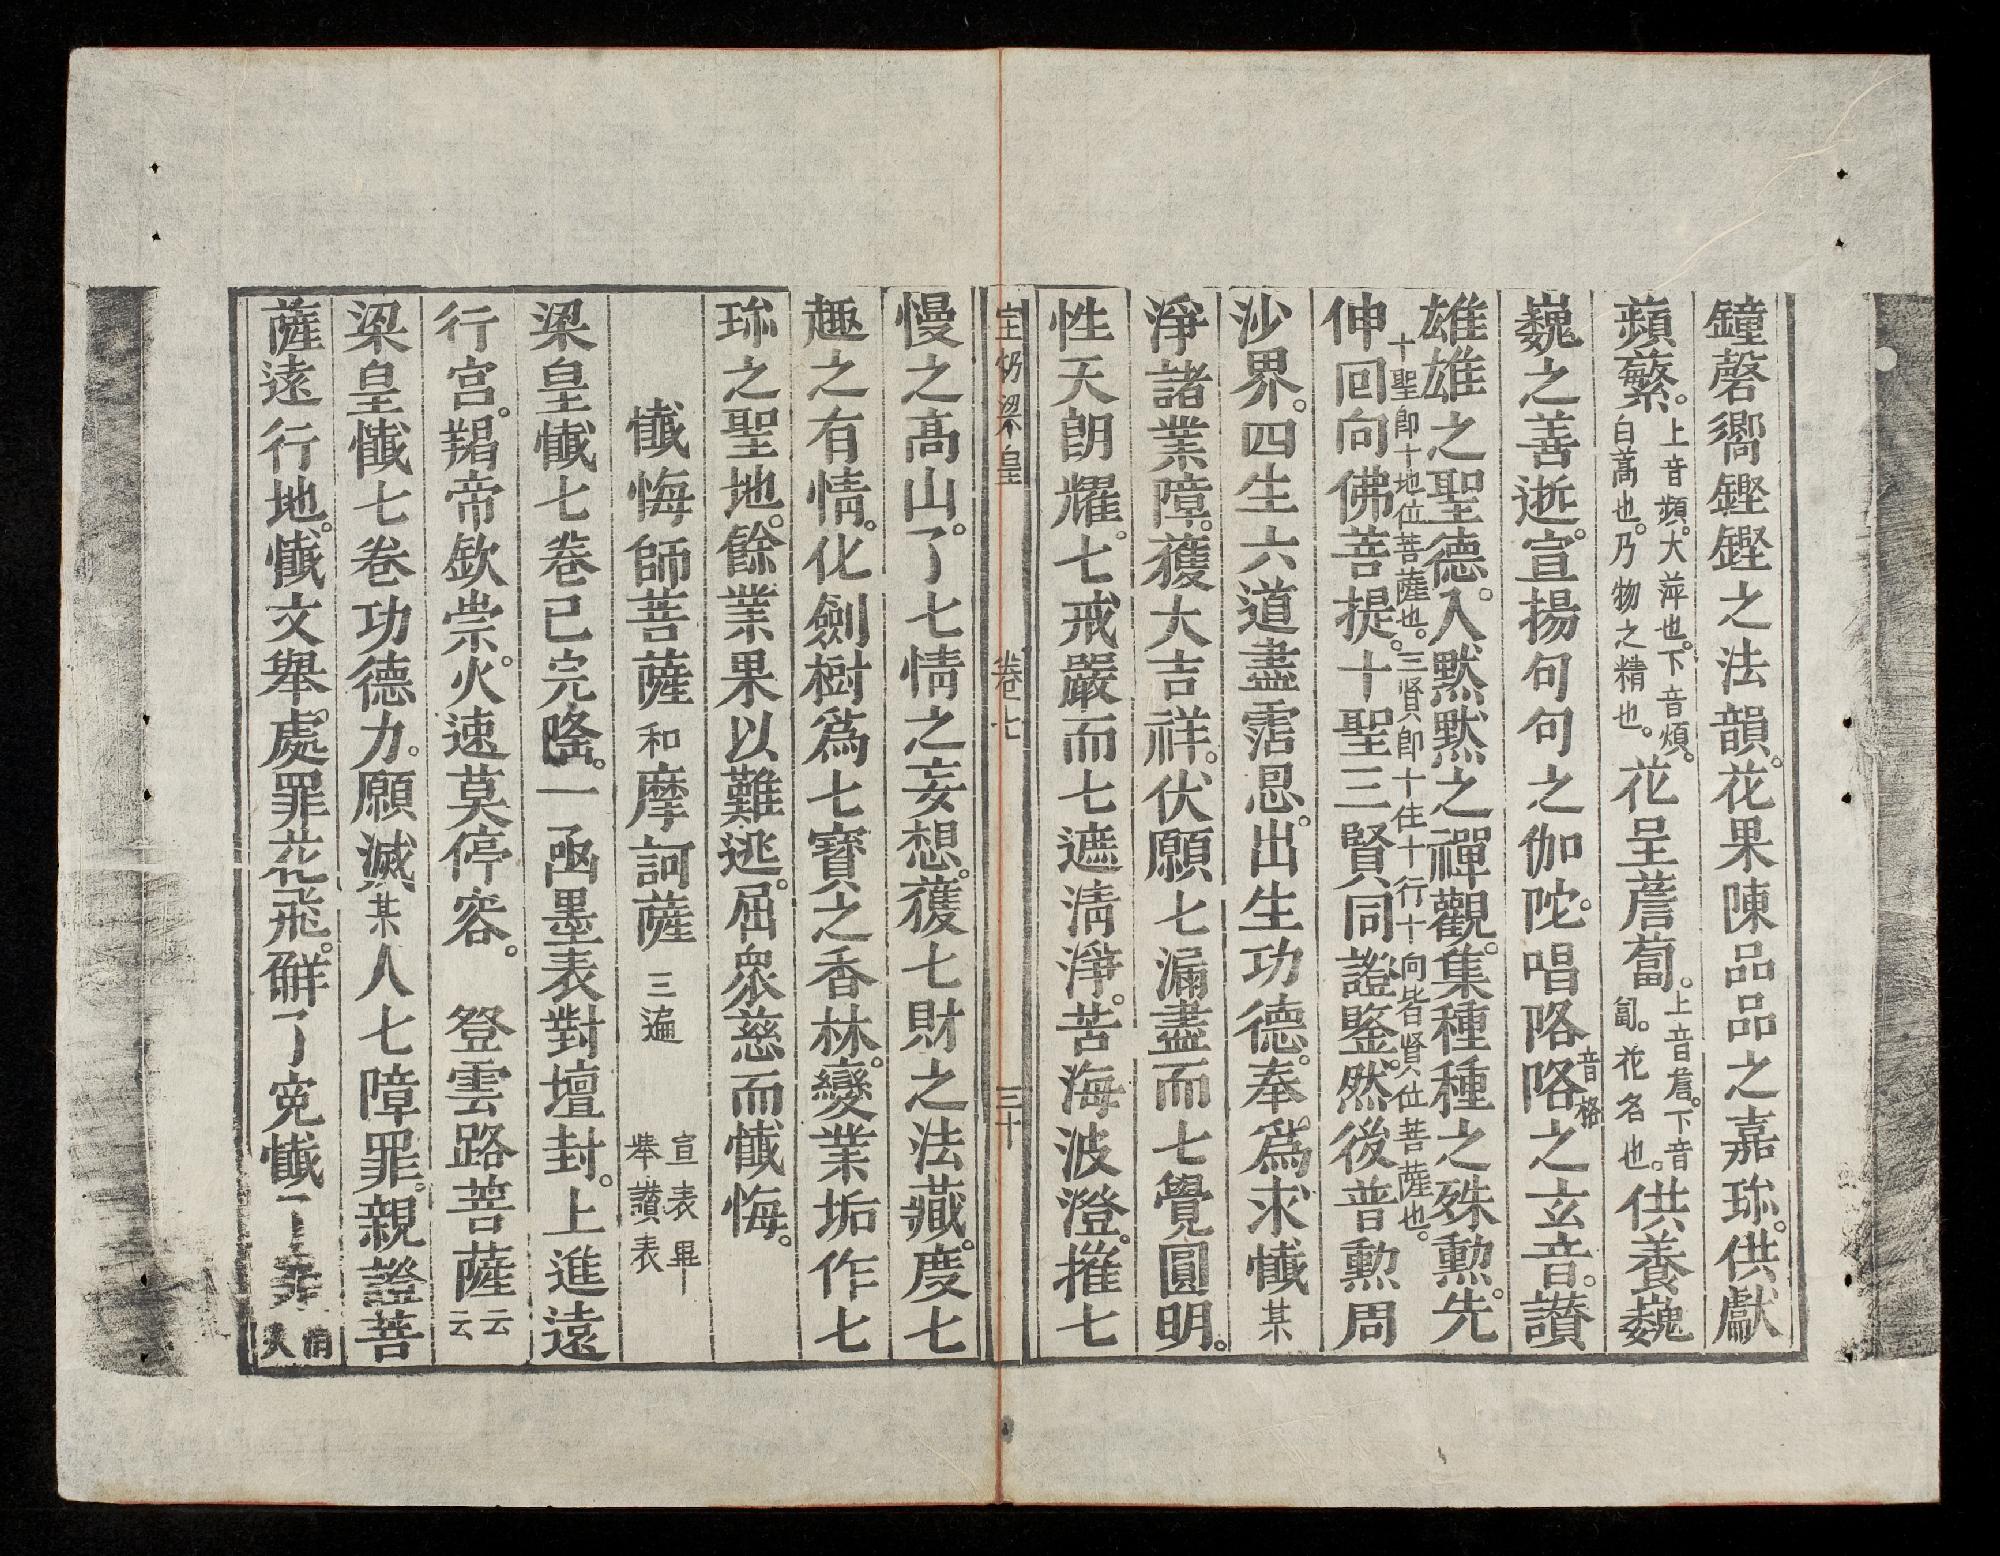 鐘磬嚮鏗鏗之法韻。花果陳品品之嘉珎。供獻
蘋蘩。上音頻。大萍也。下音煩。白蒿也。乃物之精也。花呈薝蔔。上音詹。下音匐。花名也。供養巍
巍之善逝。宣揚句句之伽陀。唱咯咯音格之玄音。讃
雄雄之聖德。入默默之禪觀。集種種之殊勲。先
十聖即十地位菩薩也。三賢即十住十行十向皆賢位菩薩也。
伸回向佛菩提。十聖三賢同證鑒。然後普勲周
沙界。四生六道盡霑恩。出生功德。奉為求懺某
淨諸業障。獲大吉祥。伏願七漏盡而七覺圓明。
性天朗耀。七戒嚴而七遮清淨。苦海波澄。摧七
梁皇 卷七 三十
慢之高山。了七情之妄想。獲七財之法藏。度七
趣之有情。化劍樹為七寶之香林。變業垢作七
珎之聖地。餘業果以難逃。屈衆慈而懺悔。
懺悔師菩薩和摩訶薩三遍 宣表畢舉讃表
梁皇懺七卷已完隆。一凾墨表對壇封。上進遠
行宮。羯帝欽崇。火速莫停容。 登雲路菩薩云云
梁皇懺七卷功德力。願滅某人七障罪。親證菩
薩遠行地。懺文舉處罪花飛。觧了寃懺了罪